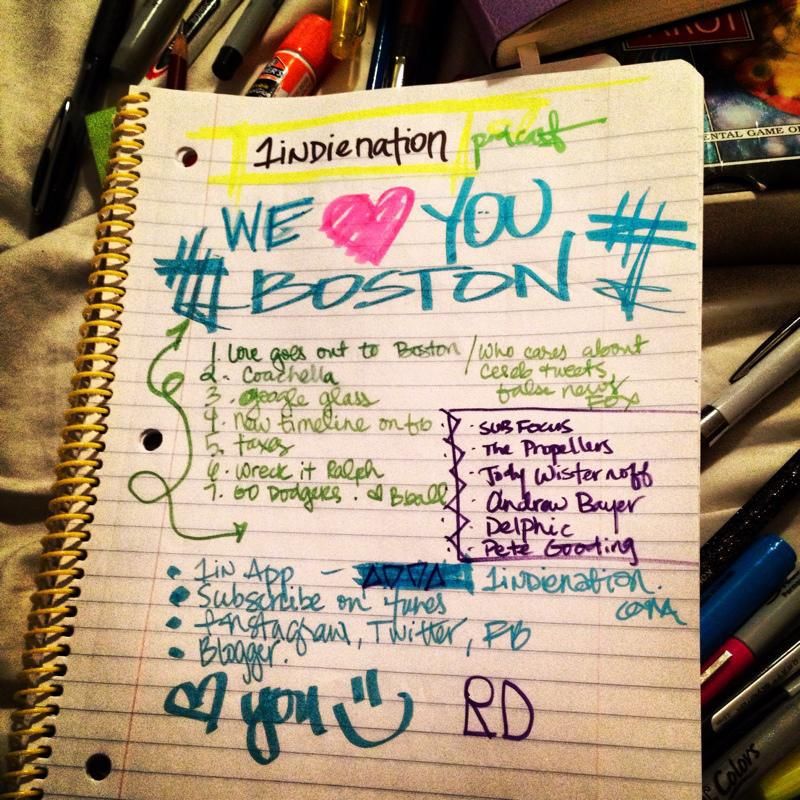 TAROT
ENTAL GAME O
1indienation podcast
WE ♥ YOU
# BOSTON #
1. Love goes out to Boston / Who cares about
celeb tweets,
false news
FOX
2. Coachella
3. google glass
4. New timeline on fb
5. taxes
6. Wreck it Ralph
7. GO Dodgers. ♥ Bball
· SUB FOCUS
· The Propellers
· Jody Wisternoff
· Andrew Bayer
· Delphic
· Pete Gooding
• 1in App - 1indienation.
com
• Subscribe on itunes
• Instagram, Twitter, FB
• Blogger.
♥ you RD
Colors